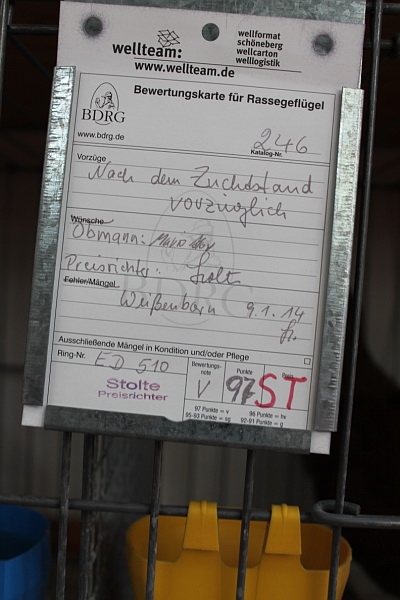 wellteam:
wellformat
schöneberg
wellcarton
welllogistik
www.wellteam.de
Bewertungskarte für Rassegeflügel
BDRG
www.bdrg.de
246
Katalog-Nr.
Vorzüge
Nach dem Zuchtstand
vorzüglich
Wünsche
Obmann:
Preisrichter: Stolte
Fehler/Mängel
Weißenborn 9.1.14
Ausschließende Mängel in Kondition und/oder Pflege
Ring-Nr. ED 510
Stolte
Preisrichter
Bewertungs-
note
V
Punkte
97
Preis
ST
97 Punkte = v
96 Punkte = hv
95-93 Punkte = sg
92-91 Punkte = g